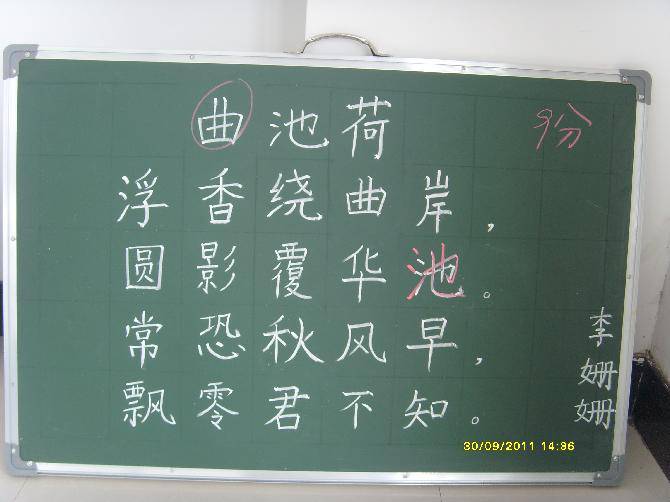 曲池荷
9分
浮香绕曲岸，
圆影覆华池。
常恐秋风早，
飘零君不知。
李姗姗
30/09/2011 14:36